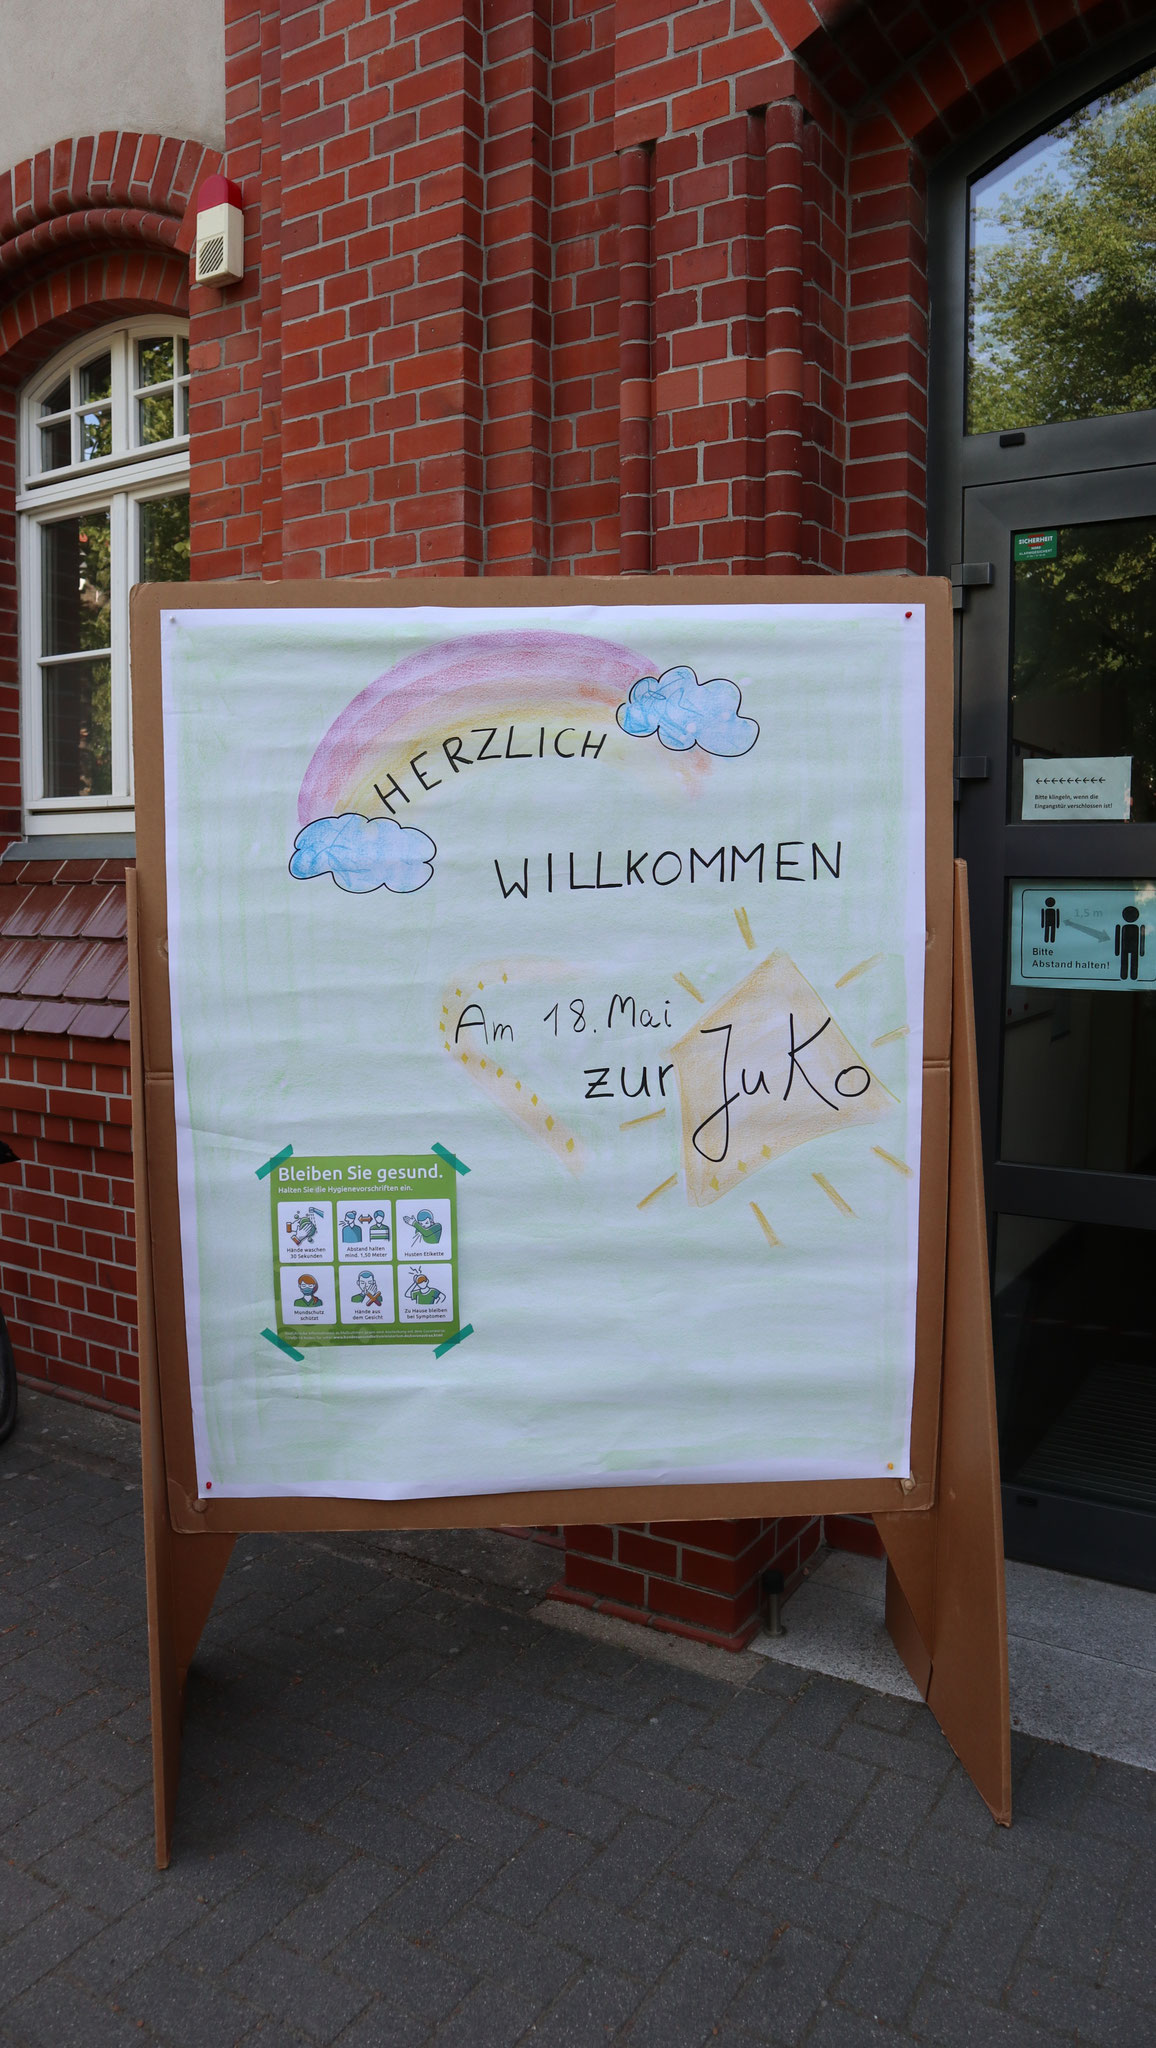 HERZLICH
WILLKOMMEN
Am 18. Mai
zur JuKo
Bleiben Sie gesund.
Halten Sie die Hygienevorschriften ein.
Hände waschen
30 Sekunden
Abstand halten
mind. 1,50 Meter
Husten Etikette
Mundschutz
schützt
Hände aus
dem Gesicht
Zu Hause bleiben
bei Symptomen
SICHERHEIT
←←←←←←←←←
Bitte klingeln, wenn die
Eingangstür verschlossen ist!
1,5 m
Bitte
Abstand halten!